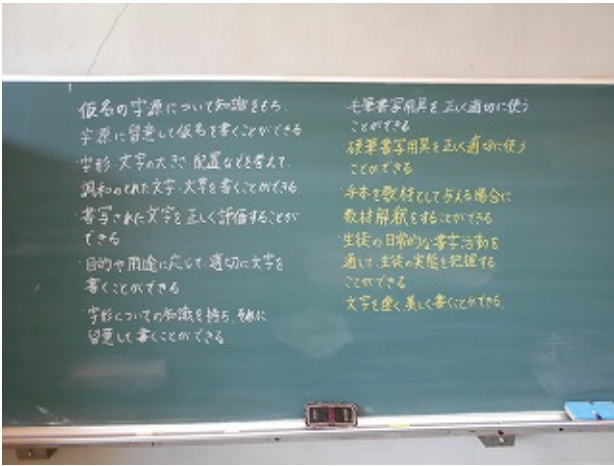 仮名の字源について知識をもち、
字源に留意して仮名を書くことができる
・字形・文字の大きさ、配置などを考えて、
調和のとれた文字・文字を書くことができる
・書写された文字を正しく評価することが
できる
・目的や用途に応じて、適切に文字を
書くことができる
・字形についての知識を持ち、それに
留意して書くことができる
毛筆書写用具を正しく適切に使う
ことができる
硬筆書写用具を正しく適切に使う
ことができる
・手本を教材として与える場合に
教材解釈をすることができる
・生徒の日常的な書字活動を
通して、生徒の実態を把握する
ことができる
文字を速く、美しく書くことができる